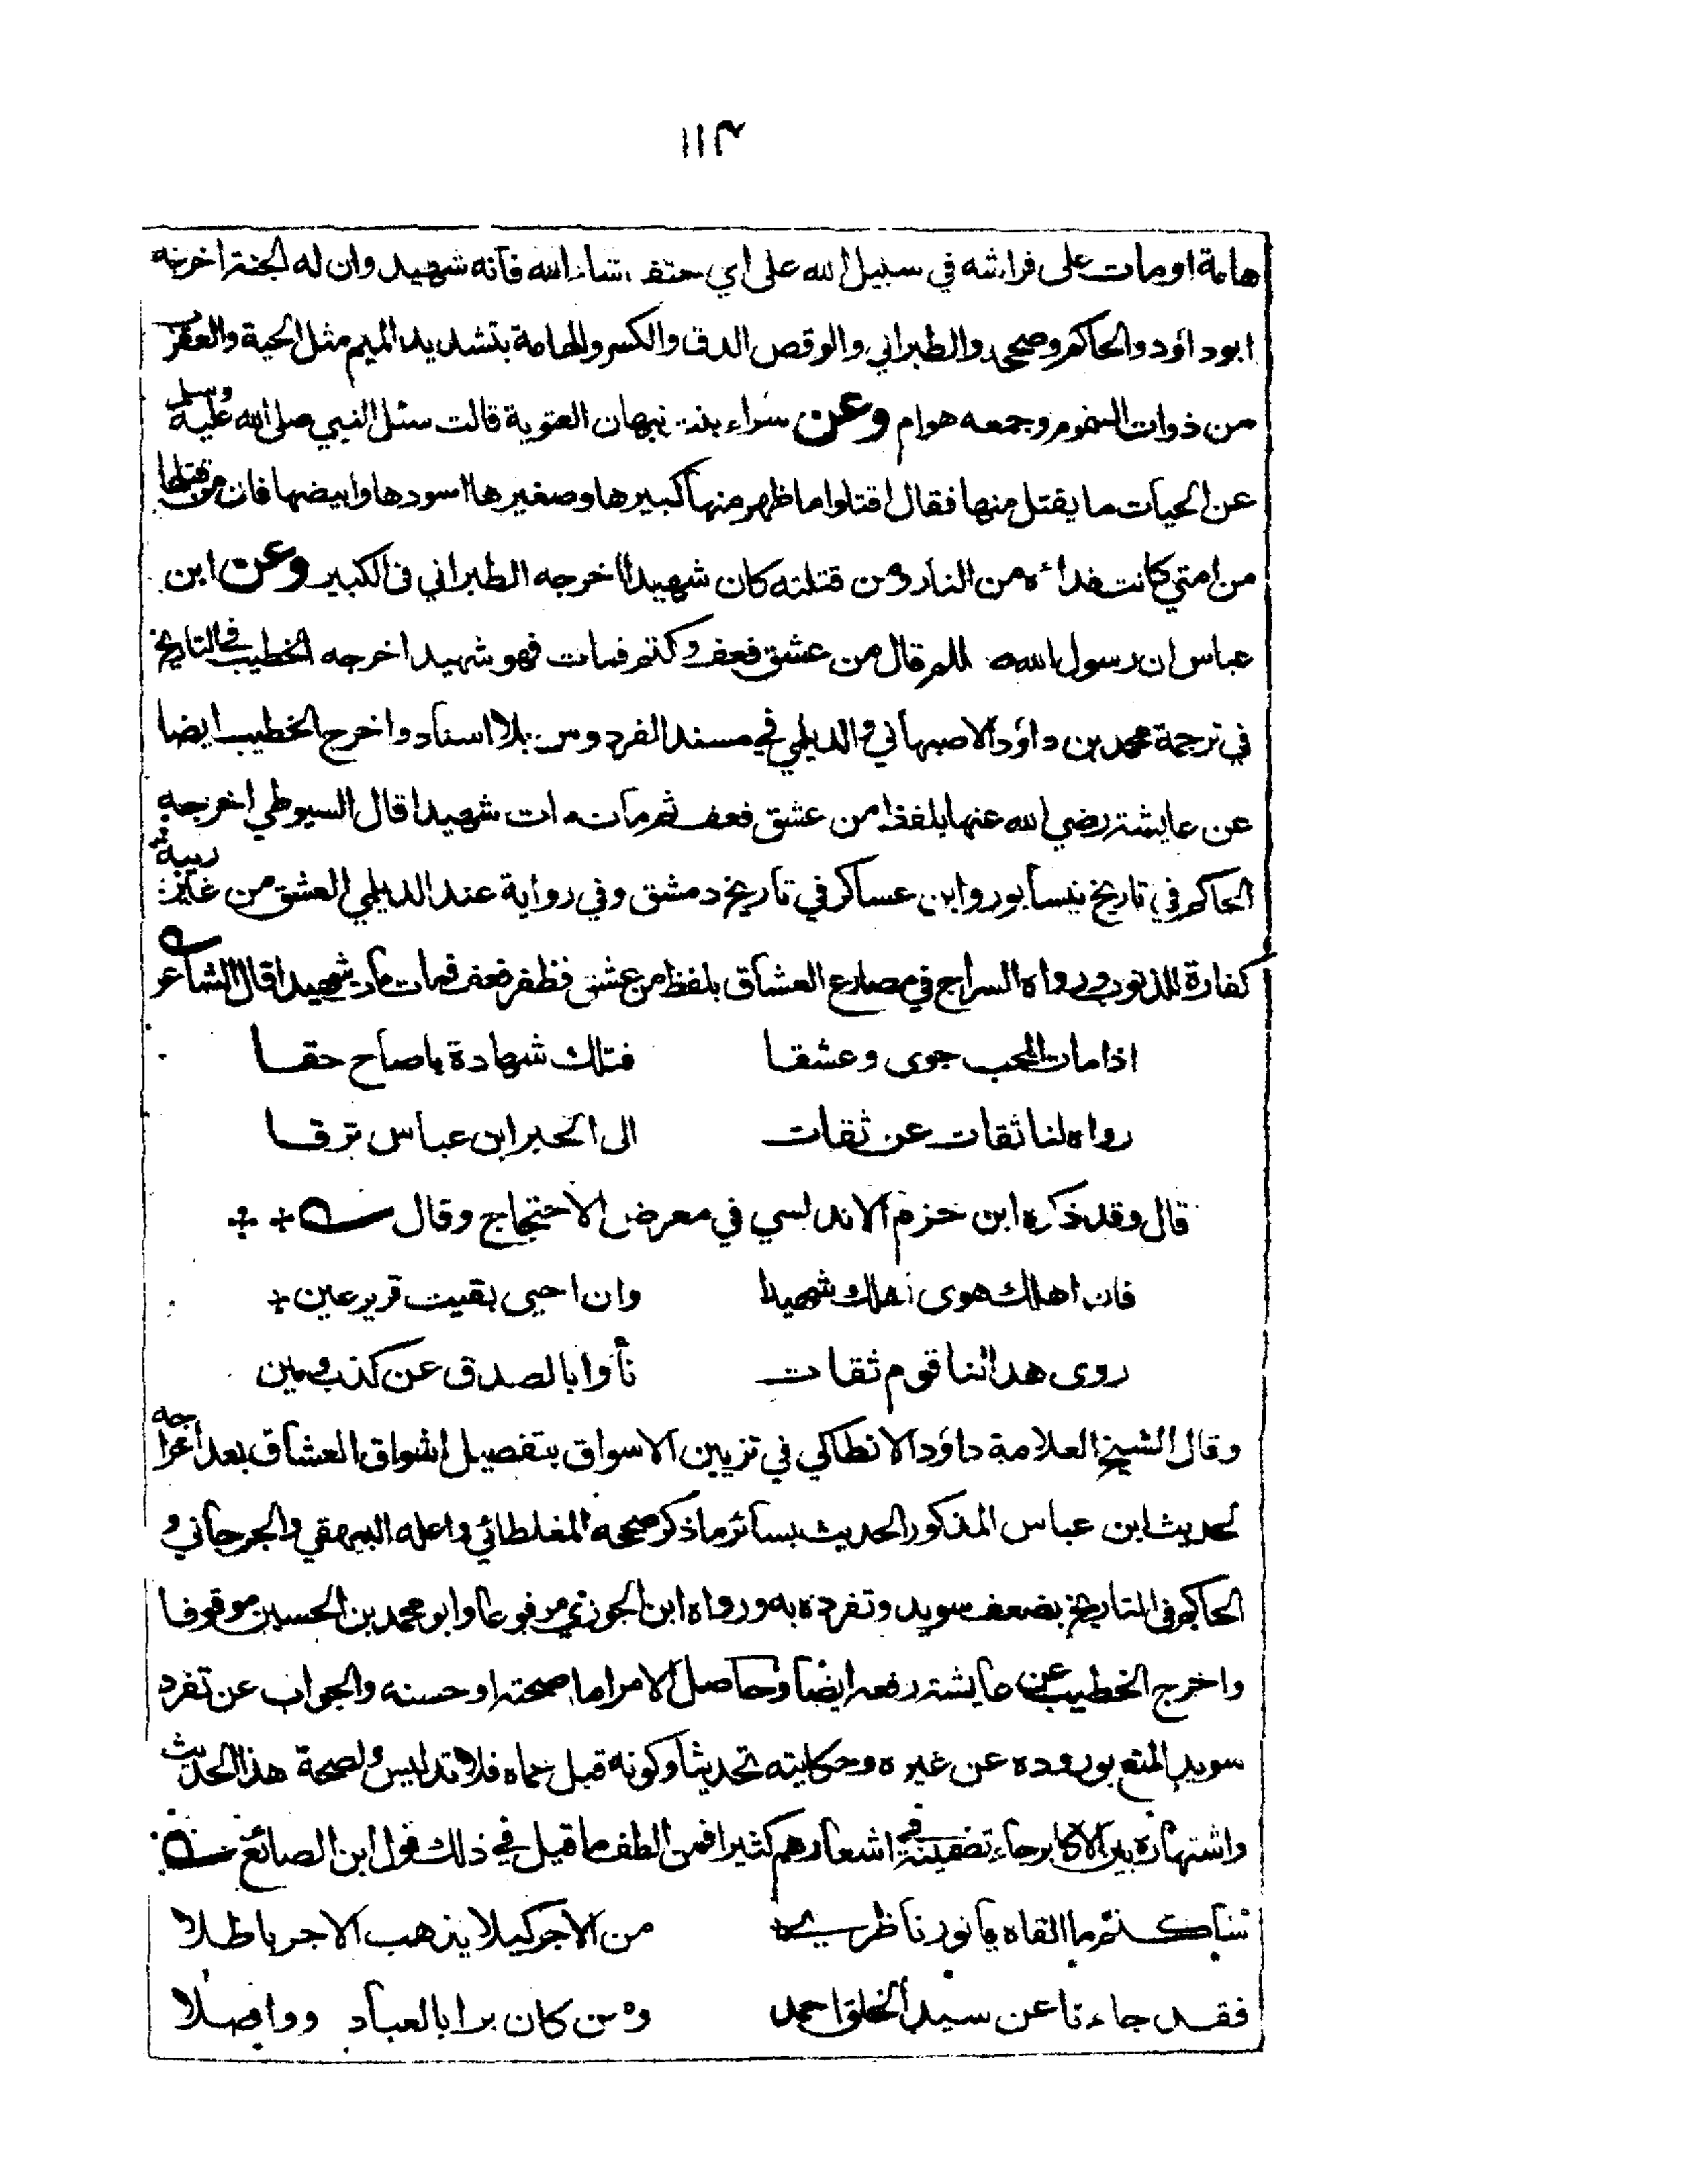 ١١٣
هامة اومات على فراشه في سبيل الله على اي حتف شاء الله فانه شهيد وان له الجنة اخرجه
ابوداؤد والحاكم وصححه والطبراني والوقص الدق والكسر والهامة بتشديد الميم مثل الحية والعقرب
من ذوات السموم وجمعه هوام وعن سراء بنت نبهان الغنوية قالت سئل النبي صلى الله عليه وسلم
عن الحيات ما يقتل منها فقال اقتلوا ما ظهر منها كبيرها وصغيرها اسودها وابيضها فان من قتلها
من امتي كانت فداءه من النار ومن قتلته كان شهيدا اخرجه الطبراني فى الكبير وعن ابن
عباس ان رسول الله صلم قال من عشق فعف وكتم فمات فهو شهيد اخرجه الخطيب في التاريخ
في ترجمة محمد بن داؤد الاصبهاني والديلمي في مسند الفردوس بلا اسناد واخرج الخطيب ايضا
عن عايشة رضي الله عنها بلفظ من عشق فعف ثم مات مات شهيدا قال السيوطي اخرجه
الحاكم في تاريخ نيسابور وابن عساكر في تاريخ دمشق وفي رواية عند الديلمي العشق من غير ريبة
كفارة للذنوب ورواه السراج في مصارع العشاق بلفظ من عشق فظفر فعف فمات مات شهيدا قال الشاعر
اذا مات المحب جوى وعشقا فتلك شهادة ياصاح حقا
رواه لنا ثقات عن ثقات الى الحبر ابن عباس ترقا
قال وقد ذكره ابن حزم الاندلسي في معرض الاحتجاج وقال
فان اهلك هوى اهلك شهيدا وان احيى بقيت قرير عين
روى هذا لنا قوم ثقات نأوا بالصدق عن كذب ومين
وقال الشيخ العلامة داؤد الانطاكي في تزيين الاسواق بتفصيل اشواق العشاق بعد اخراجه
لحديث ابن عباس المذكور الحديث بسائر ما ذكر صححه المغلطائي واعله البيهقي والجرجاني و
الحاكم فى التاريخ بضعف سويد وتفرده به ورواه ابن الجوزي مرفوعا وابو محمد بن الحسين موقوفا
واخرج الخطيب عن عايشة رفعه ايضا وحاصل الامر اما صحته او حسنه والجواب عن تفرد
سويد المنع بوروده عن غيره وحكايته تحديثا وكونه قبل عماه فلا تدليس ولصحة هذا الحديث
واشتهاره بين الاكابر جاء تضمينه في اشعارهم كثيرا فمن الطف ما قيل في ذلك قول ابن الصائغ
سأكتم ما القاه يا نور ناظري من الاجر كيلا يذهب الاجر باطلا
فقد جاءنا عن سيد الخلق احمد ومن كان برا بالعباد وواصلا